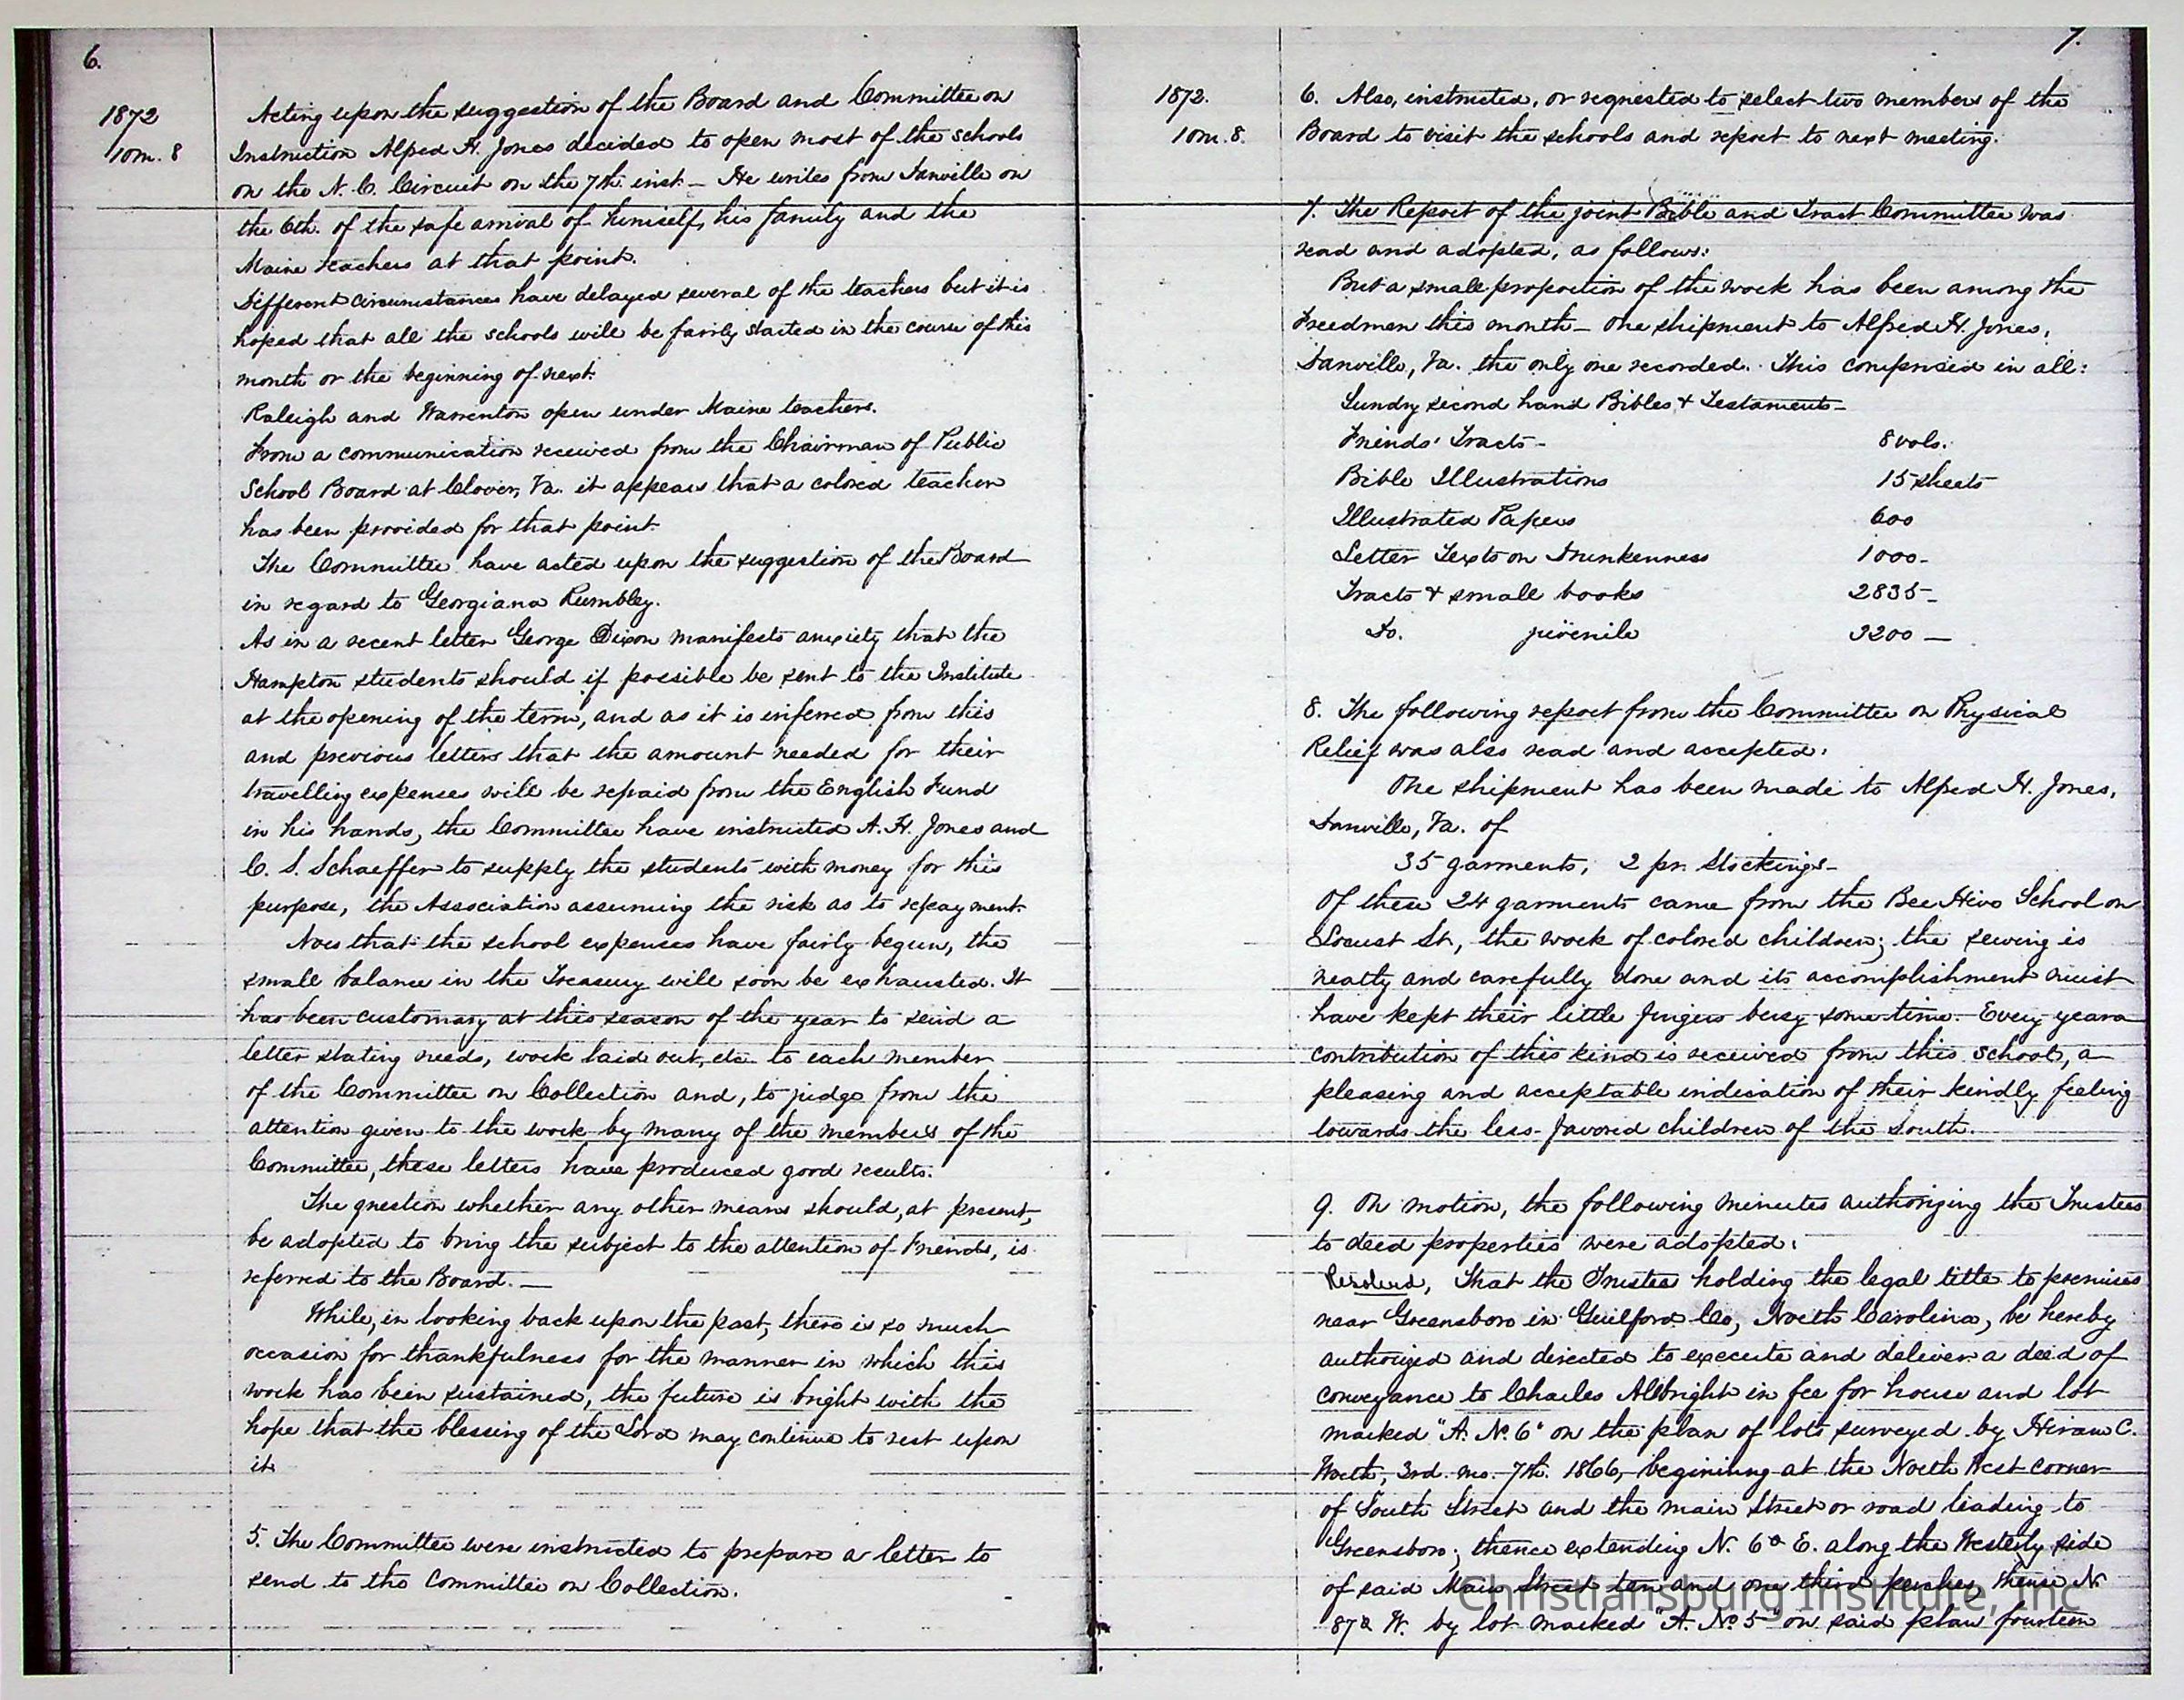 6.
1872
10m. 8
Acting upon the suggestion of the Board and Committee on
Instruction Alfred H. Jones decided to open most of the schools
on the N. C. Circuit on the 7th. inst. – He writes from Danville on
the 6th. of the safe arrival of himself, his family and the
Maine teachers at that point.
Different circumstances have delayed several of the teachers but it is
hoped that all the schools will be fairly started in the course of this
month or the beginning of next.
Raleigh and Warrenton open under Maine teachers.
From a communication received from the Chairman of Public
School Board at Clover, Va. it appears that a colored teacher
has been provided for that point.
The Committee have acted upon the suggestion of the Board
in regard to Georgiana Rumbley.
As in a recent letter George Dixon manifests anxiety that the
Hampton students should if possible be sent to the Institute
at the opening of the term, and as it is inferred from this
and previous letters that the amount needed for their
travelling expenses will be repaid from the English Fund
in his hands, the Committee have instructed A. H. Jones and
C. S. Schaeffer to supply the students with money for this
purpose, the Association assuming the risk as to repayment.
Now that the school expenses have fairly begun, the
small balance in the Treasury will soon be exhausted. It
has been customary at this season of the year to send a
letter stating needs, work laid out, etc. to each member
of the Committee on Collection and, to judge from the
attention given to the work by many of the members of the
Committee, these letters have produced good results.
The question whether any other means should, at present,
be adopted to bring the subject to the attention of Friends, is
referred to the Board. —
While, in looking back upon the past, there is so much
occasion for thankfulness for the manner in which this
work has been sustained, the future is bright with the
hope that the blessing of the Lord may continue to rest upon
it.
5. The Committee were instructed to prepare a letter to
send to the Committee on Collection.
7.
1872.
10m. 8.
6. Also, instructed, or requested to select two members of the
Board to visit the schools and report to next meeting.
7. The Report of the joint Bible and Tract Committee was
read and adopted, as follows:
But a small proportion of the work has been among the
Freedmen this month – One shipment to Alfred H. Jones,
Danville, Va. the only one recorded. This comprised in all:
Sundry second hand Bibles & Testaments –
Friends' Tracts – 8 vols.
Bible Illustrations 15 sheets
Illustrated Papers 600
Letter Texts on Drunkenness 1000 –
Tracts & small books 2835 –
Do. juvenile 3200 —
8. The following report from the Committee on Physical
Relief was also read and accepted:
One shipment has been made to Alfred H. Jones,
Danville, Va. of
35 garments, 2 pr. stockings –
Of these 24 garments came from the Bee Hive School on
Locust St, the work of colored children; the sewing is
neatly and carefully done and its accomplishment must
have kept their little fingers busy some time. Every year a
contribution of this kind is received from this school, a
pleasing and acceptable indication of their kindly feeling
towards the less-favored children of the South.
9. On motion, the following minutes authorizing the Trustees
to deed properties were adopted:
Resolved, That the Trustee holding the legal title to premises
near Greensboro in Guilford Co, North Carolina, be hereby
authorized and directed to execute and deliver a deed of
conveyance to Charles Allbright in fee for house and lot
marked "A. No. 6" on the plan of lots surveyed by Hiram C.
Worth, 3rd. mo. 7th. 1866, beginning at the North West corner
of South Street and the main Street or road leading to
Greensboro; thence extending N. 6° E. along the Westerly side
of said Main Street ten and one third perches, thence N
87° W. by lot marked "A. No. 5" on said plan fourteen
Christiansburg Institute, Inc